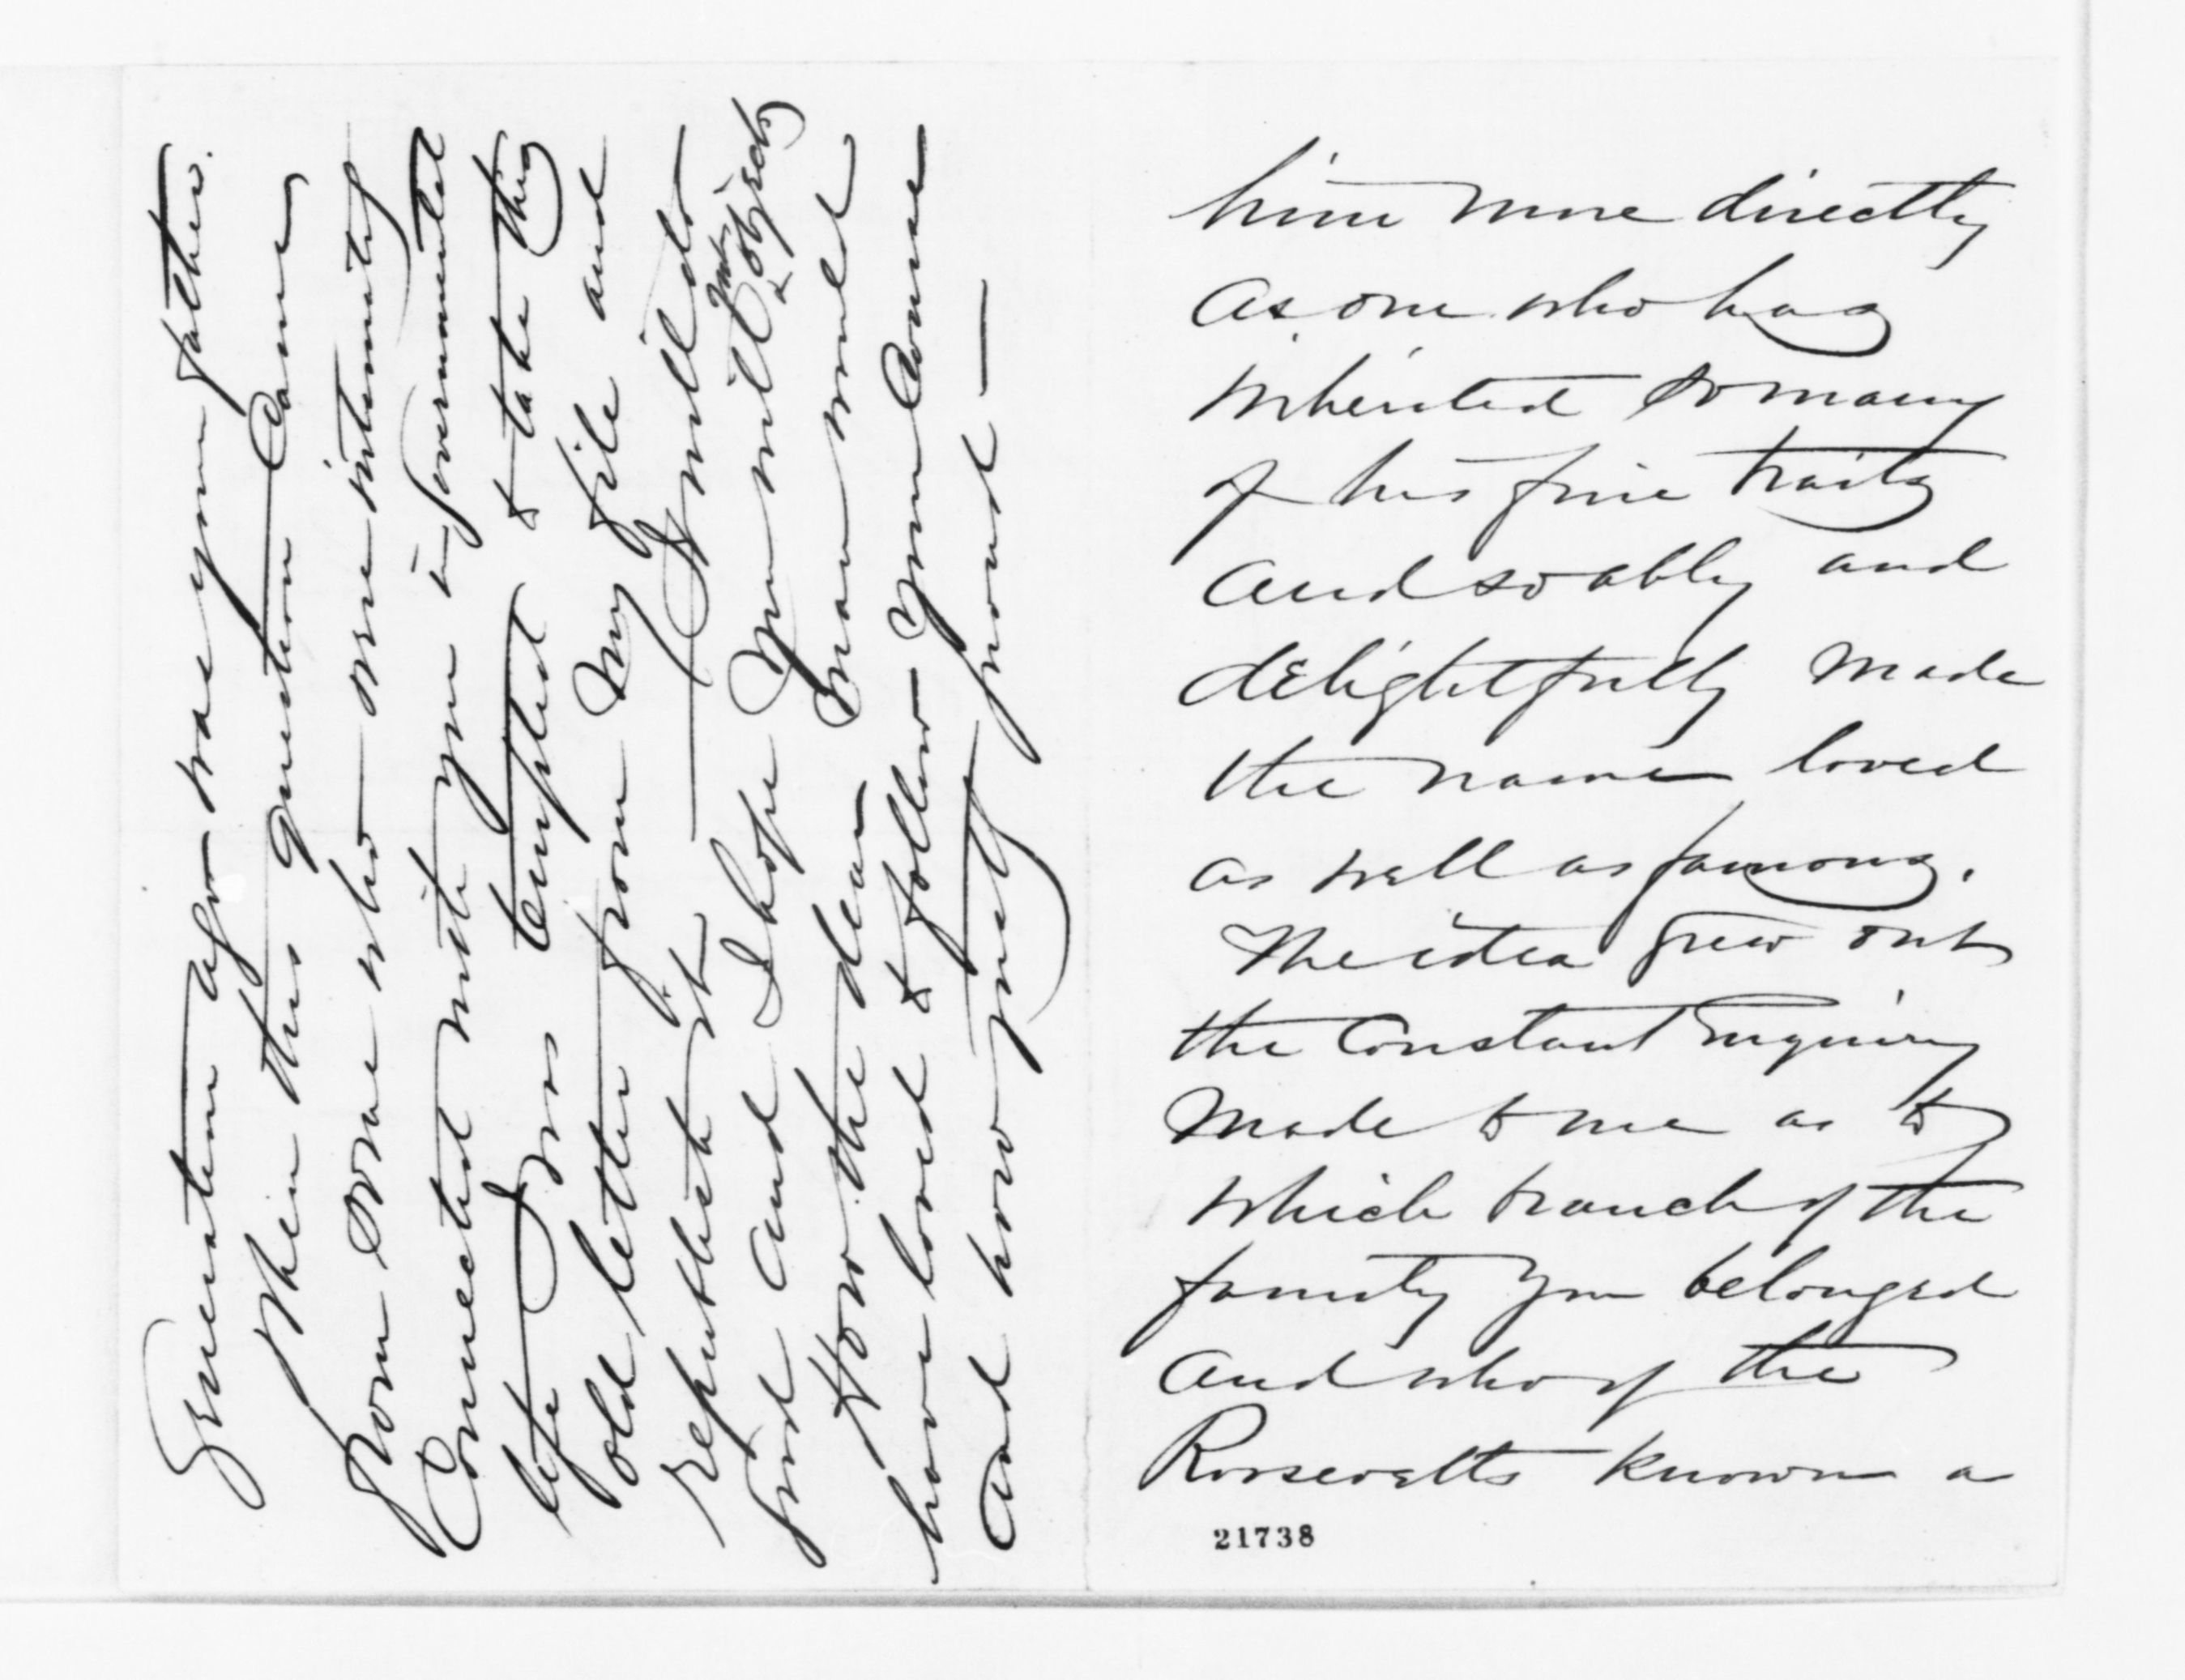 him more directly
as one who has
inherited so many
of his fine traits
and so ably and
delightfully made
the name loved
as well as famous.
The idea grew out
the constant enquiry
made to me as to
which branch of the
family you belonged
and who of the
Roosevelts known a
21738
Generation ago was your father.
When this question came
from some who were intimately
Connected with you in governmental
life I was tempted to take this
old letter from my file and
republish it — I will do
and I hope you will not object
How the dear man would
have loved to follow your course
and how justly proud —